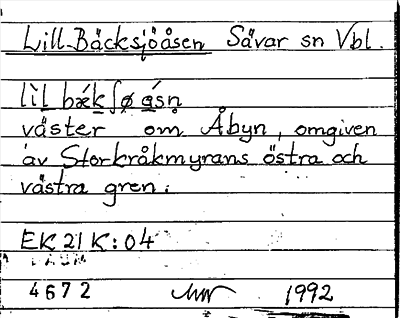 Lill-Bäcksjöåsen Sävar sn Vbl.
lìl bǽkʃø ásn̥
väster om Åbyn, omgiven
av Storkråkmyrans östra och
västra gren.
EK 21 K:04
4672 1992